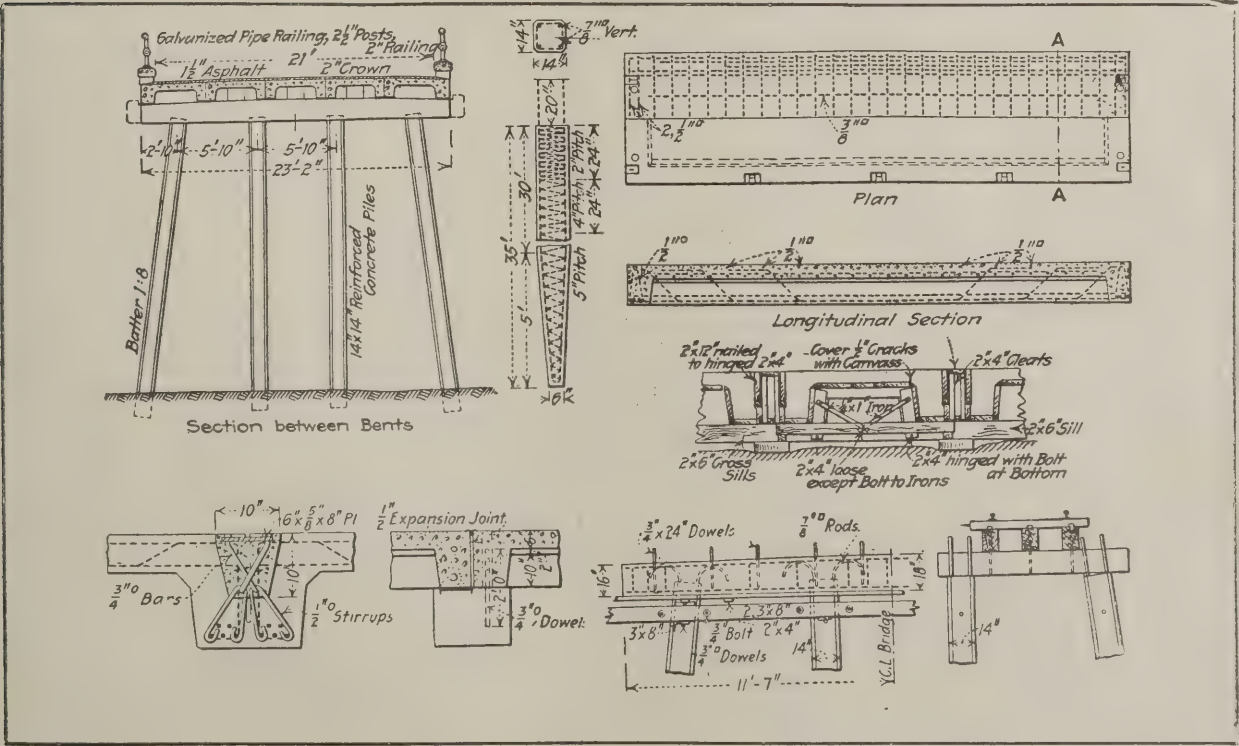 Galvanized Pipe Railing, 2½" Posts,
2" Railing
21'
1½" Asphalt 2" Crown
2'-10" 5'-10" 5'-10"
23'-2"
Batter 1:8
14"x14" Reinforced
Concrete Piles
Section between Bents
14"
⅞"□ Vert.
14"
20"
2" Pitch
24"
4" Pitch
24"
30'
35'
5" Pitch
5'
6"
A
2, ½"□
⅜"□
Plan
A
½"□ ½"□ ½"□
Longitudinal Section
2"x12" nailed
to hinged 2"x4"
Cover ½" Cracks
with Canvass
2"x4" Cleats
¼"x1" Iron
2"x6" Sill
2"x6" Cross
Sills
2"x4" loose
except Bolt to Irons
2"x4" hinged with Bolt
at Bottom
10"
6"x⅝"x8" Pl
10"
¾"□ Bars
½"□ Stirrups
½" Expansion Joint
6"
10"
2"
2'-0"
¾"□ Dowel
¾"x24" Dowels
⅞"□ Rods.
16"
18"
2, 3"x8"
3"x8"
¾" Bolt 2"x4"
¾"□ Dowels
14"
C.L. Bridge
11'-7"
14"